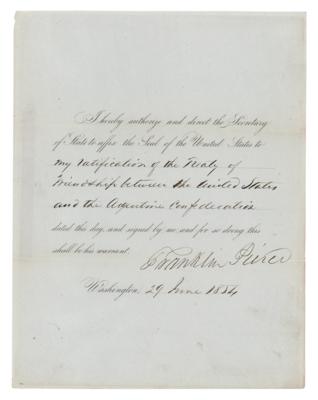 I hereby authorize and direct the Secretary
of State to affix the Seal of the United States to
my ratification of the Treaty of
Friendship between the United States
and the Argentine Confederation
dated this day, and signed by me, and for so doing this
shall be his warrant.
Franklin Pierce
Washington, 29 June 1854